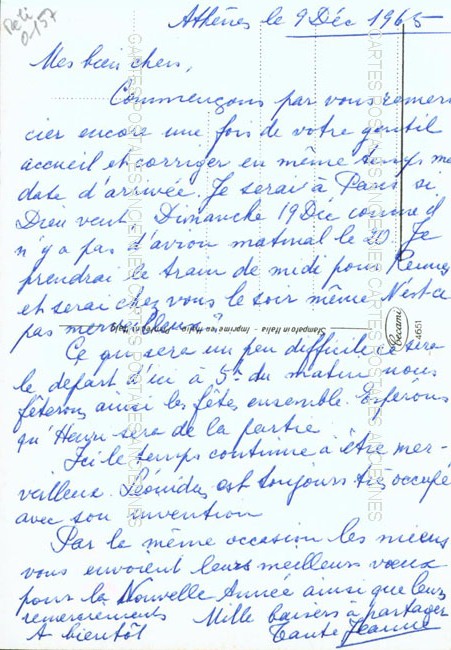 Athènes le 9 Déc 1965
Mes bien chers,
Commençons par vous remer
cier encore une fois de votre gentil
accueil et corriger en même temps ma
date d'arrivée. Je serai à Paris si
Dieu veut Dimanche 19 Déc comme il
n'y a pas d'avion matinal le 20. Je
prendrai le train de midi pour Rennes
et serai chez vous le soir même N'est-ce
pas merveilleux ?
Stampato in Italia - Imprimé en Italie - Printed in Italy
Cecami
4651
Ce qui sera un peu difficile ce sera
le départ d'ici à 5h du matin nous
fêterons ainsi les fêtes ensemble. Espérons
qu'Henri sera de la partie
Ici le temps continue à être mer-
veilleux. Léonidas est toujours très occupé
avec son invention
Par la même occasion les miens
vous envoient leurs meilleurs vœux
pour la Nouvelle Année ainsi que leurs
remerciements Mille baisers à partager
A bientôt Tante Jeanne
CARTES POSTALES ANCIENNES